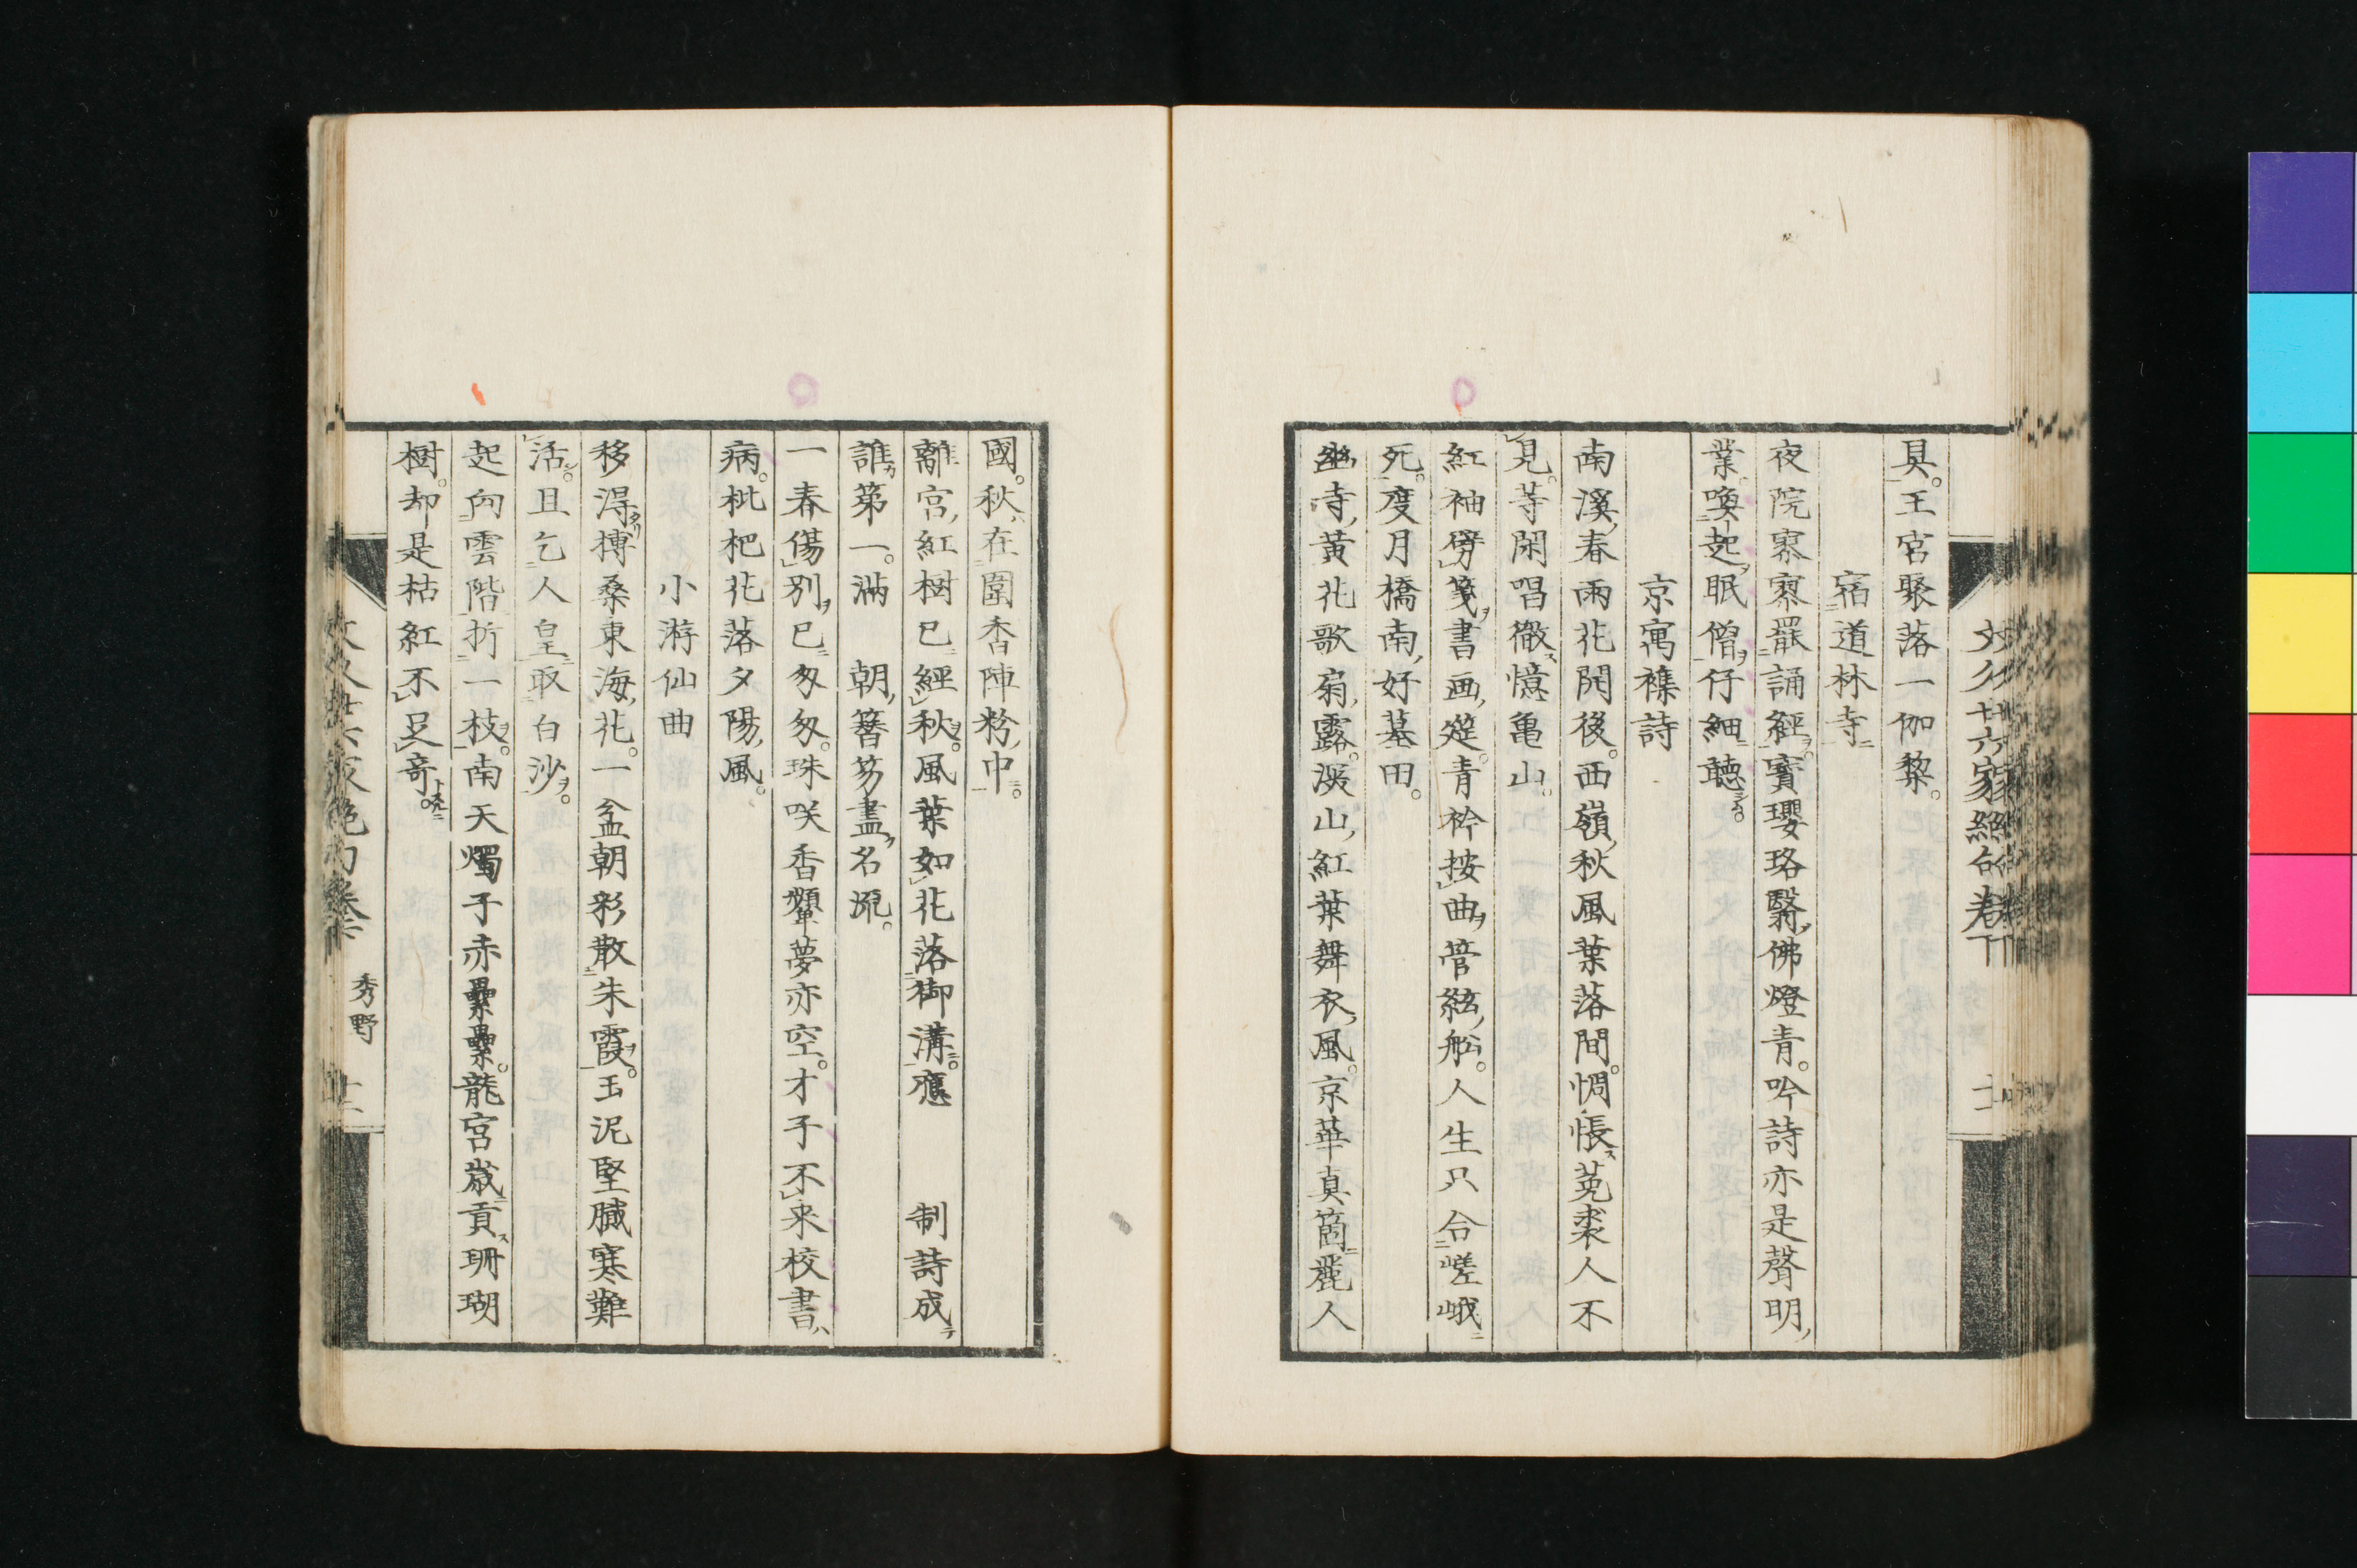 文久廿六家絶句卷下
具。王宮聚落一伽黎。
宿道林寺
夜院寥寥罷誦經。寶瓔珞翳佛燈青。吟詩亦是聲明
業。喚起眠僧仔細聽。
京寓襍詩
南溪春雨花開後。西嶺秋風葉落間。惆悵菟裘人不
見。等閑唱徹憶亀山。
紅袖劈箋書画筵。青衿按曲管絃船。人生只合嵯峨
死。度月橋南好墓田。
幽寺黃花歌扇露。淡山紅葉舞衣風。京華真箇麗人
國。秋在圍香陣粉中。
離宮紅樹已經秋。風葉如花落御溝。應 制詩成
誰第一。滿 朝簪笏盡名流。
一春傷別已匆匆。珠咲香顰夢亦空。才子不来校書
病。枇杷花落夕陽風。
小游仙曲
移得搏桑東海花。一盆朝彩散朱霞。玉泥堅膩寒難
活。且乞人皇取白沙。
起向雲階折一枝。南天燭子赤纍纍。龍宮歲貢珊瑚
樹。却是枯紅不足奇。
秀野